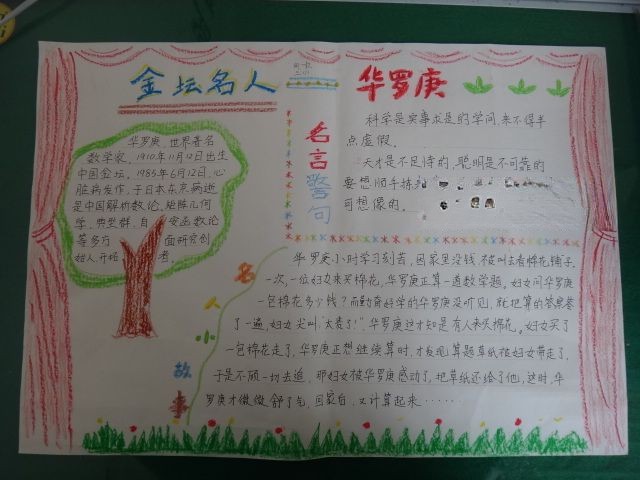 金坛名人
华罗庚
华罗庚,世界著名
数学家,1910年11月12日出生
中国金坛,1985年6月12日,心
脏病发作,于日本东京病逝
是中国解析数论、矩阵几何
学、典型群、自安函数论
等多方面研究创
始人开拓者.
名言警句
科学是实事求是的学问,来不得半
点虚假.
天才是不足恃的,聪明是不可靠的
要想顺手拣
可想像的.
名人小故事
华罗庚小时学习刻苦,因家里没钱,被叫去看棉花铺子.
一次,一位妇女来买棉花,华罗庚正算一道数学题,妇女问华罗庚
一包棉花多少钱?而勤奋好学的华罗庚没听见,就把算的答案答
了一遍,妇女尖叫“太贵了!”,华罗庚这才知是有人来买棉花,妇女买了
一包棉花走了,华罗庚正想继续算时,才发现算题草纸被妇女带走了,
于是不顾一切去追,那妇女被华罗庚感动了,把草纸还给了他,这时,华
罗庚才微微舒了气,回家后,又计算起来……